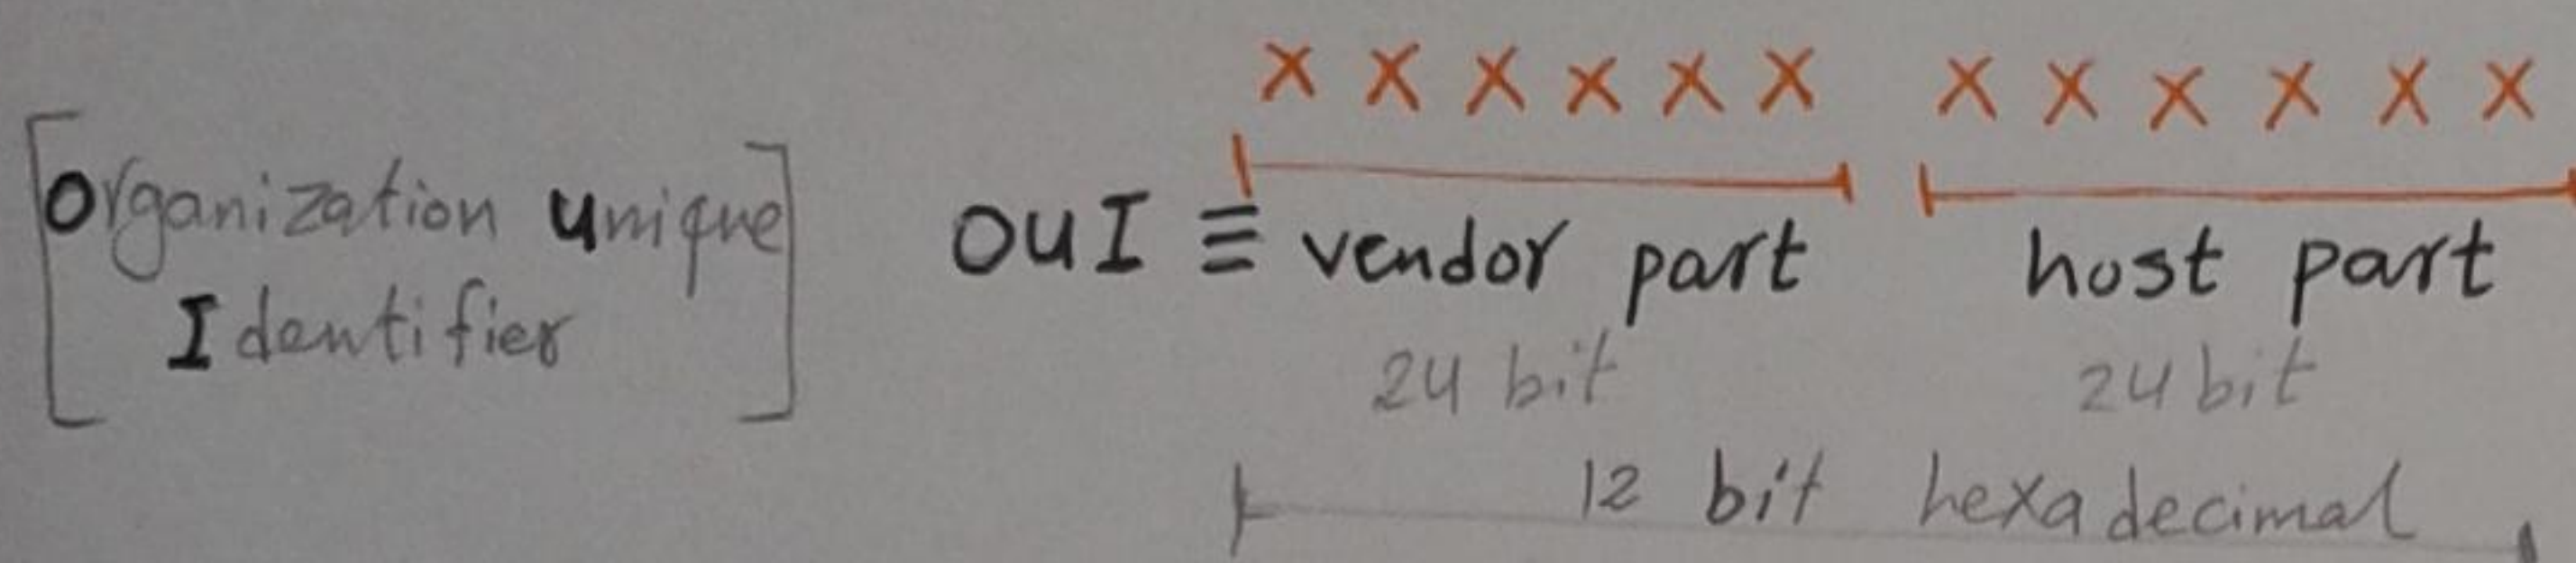 x x x x x x x x x x x x
Organization unique
Identifier
OUI ≡ vendor part host part
24 bit 24 bit
12 bit hexadecimal